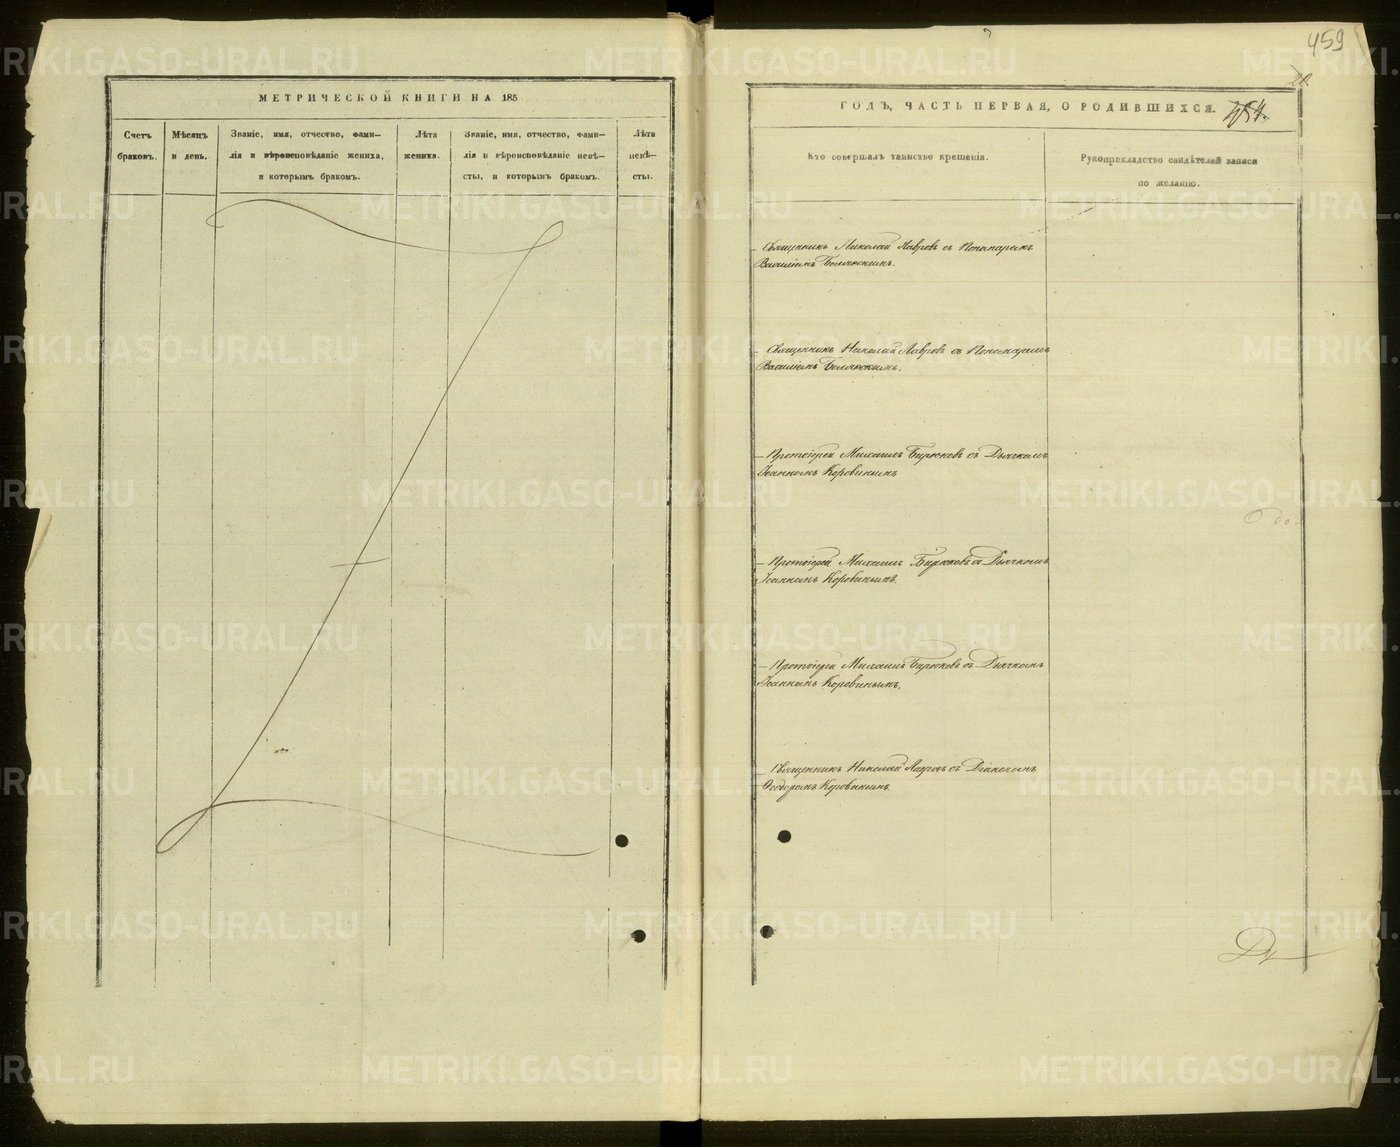 МЕТРИЧЕСКОЙ КНИГИ НА 185
Счетъ браковъ.
Мѣсяцъ и день.
Званіе, имя, отчество, фами-
лія и вѣроисповѣданіе жениха,
и которымъ бракомъ.
Лѣта жениха.
Званіе, имя, отчество, фами-
лія и вѣроисповѣданіе невѣ-
сты, и которымъ бракомъ.
Лѣта невѣ-
сты.
459
20
454.
ГОДЪ, ЧАСТЬ ПЕРВАЯ, О РОДИВШИХСЯ.
Кто совершалъ таинство крещенія.
Рукоприкладство свидѣтелей записи
по желанію.
Священникъ Николай Лавровъ съ Пономаремъ
Василіемъ
Священникъ Николай Лавровъ съ Пономаремъ
Василіемъ
Протоіерей Михаилъ Бирюковъ съ Дьячкомъ
Іоанномъ Коровинымъ
Протоіерей Михаилъ Бирюковъ съ Дьячкомъ
Іоанномъ Коровинымъ.
Протоіерей Михаилъ Бирюковъ съ Дьячкомъ
Іоанномъ Коровинымъ.
Священникъ Николай Лавровъ съ Діакономъ
Ѳеодоромъ Коровинымъ.
METRIKI.GASO-URAL.RU